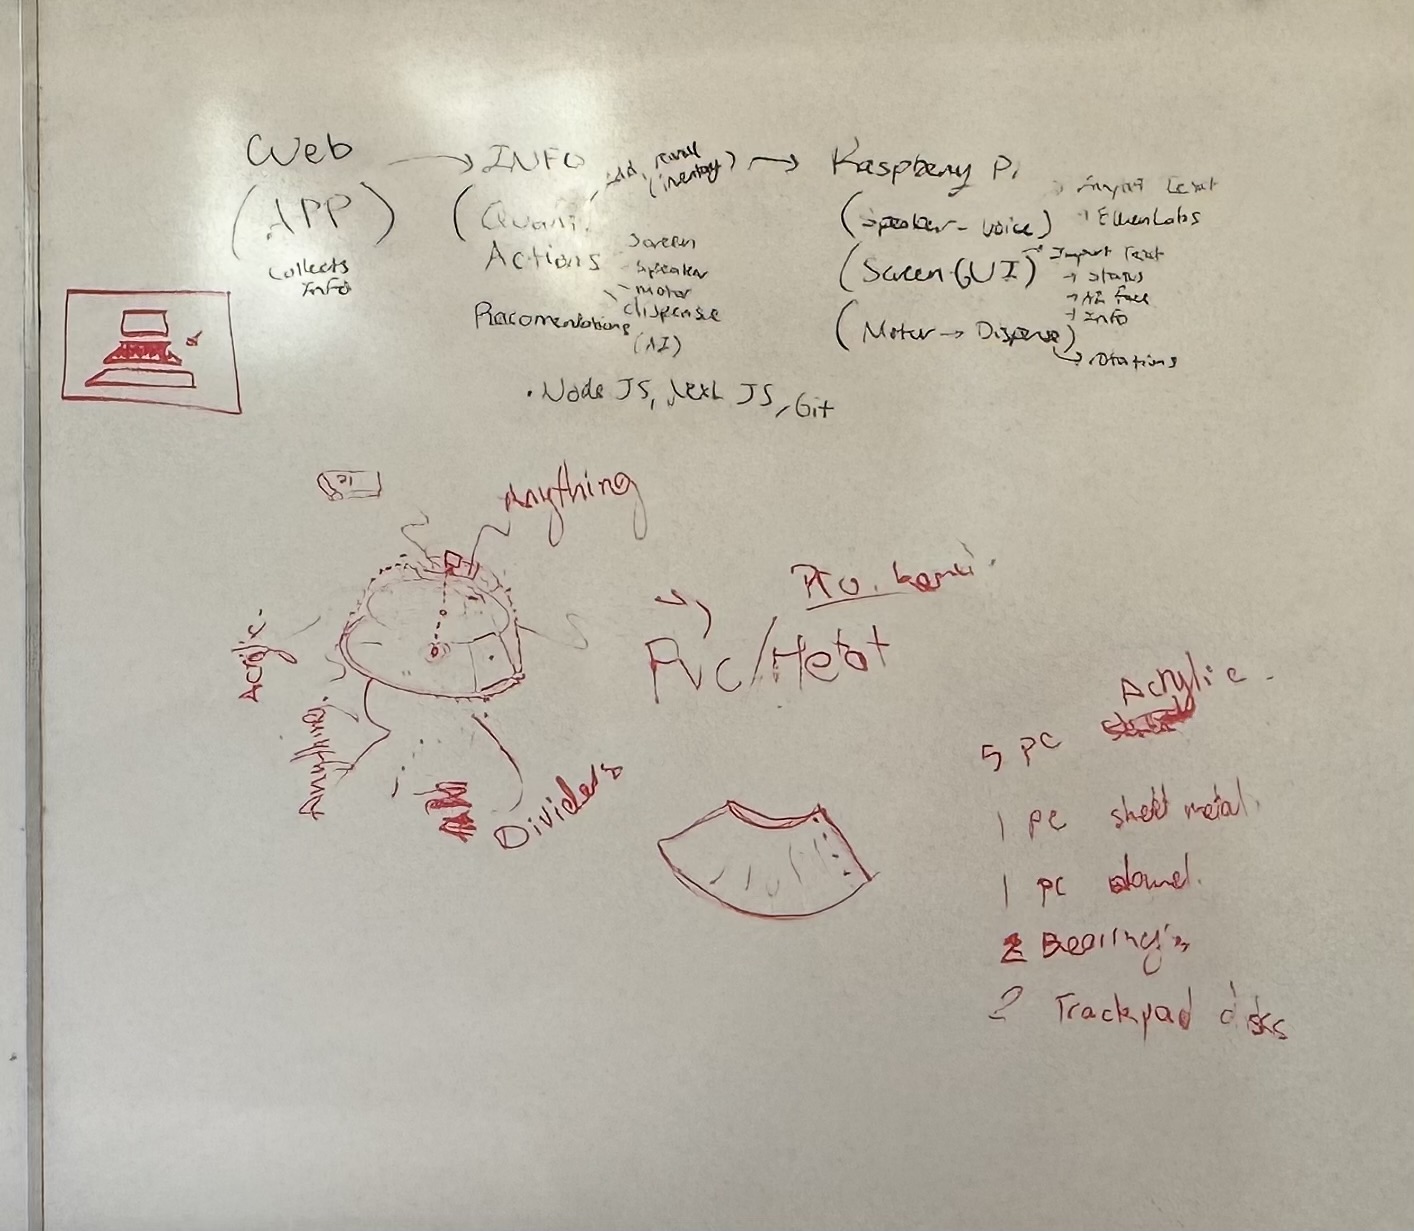 Web
(APP)
Collects
Info
INFO
Add, remove
(inventory)
Actions
Screen
Speaker
Motor
dispense
Racomendations
(AI)
• Node JS, Next JS, Git
Raspberry Pi
(Speaker - Voice)
(Screen GUI)
Import Text
→ Status
→ AI face
→ Info
(Motor → Dispense)
Anything
Acrylic.
Anything.
Dividers
PVC/Metal
5 PC Acrylic.
1 PC sheet metal.
1 PC
2 Bearings
2 Trackpad disks